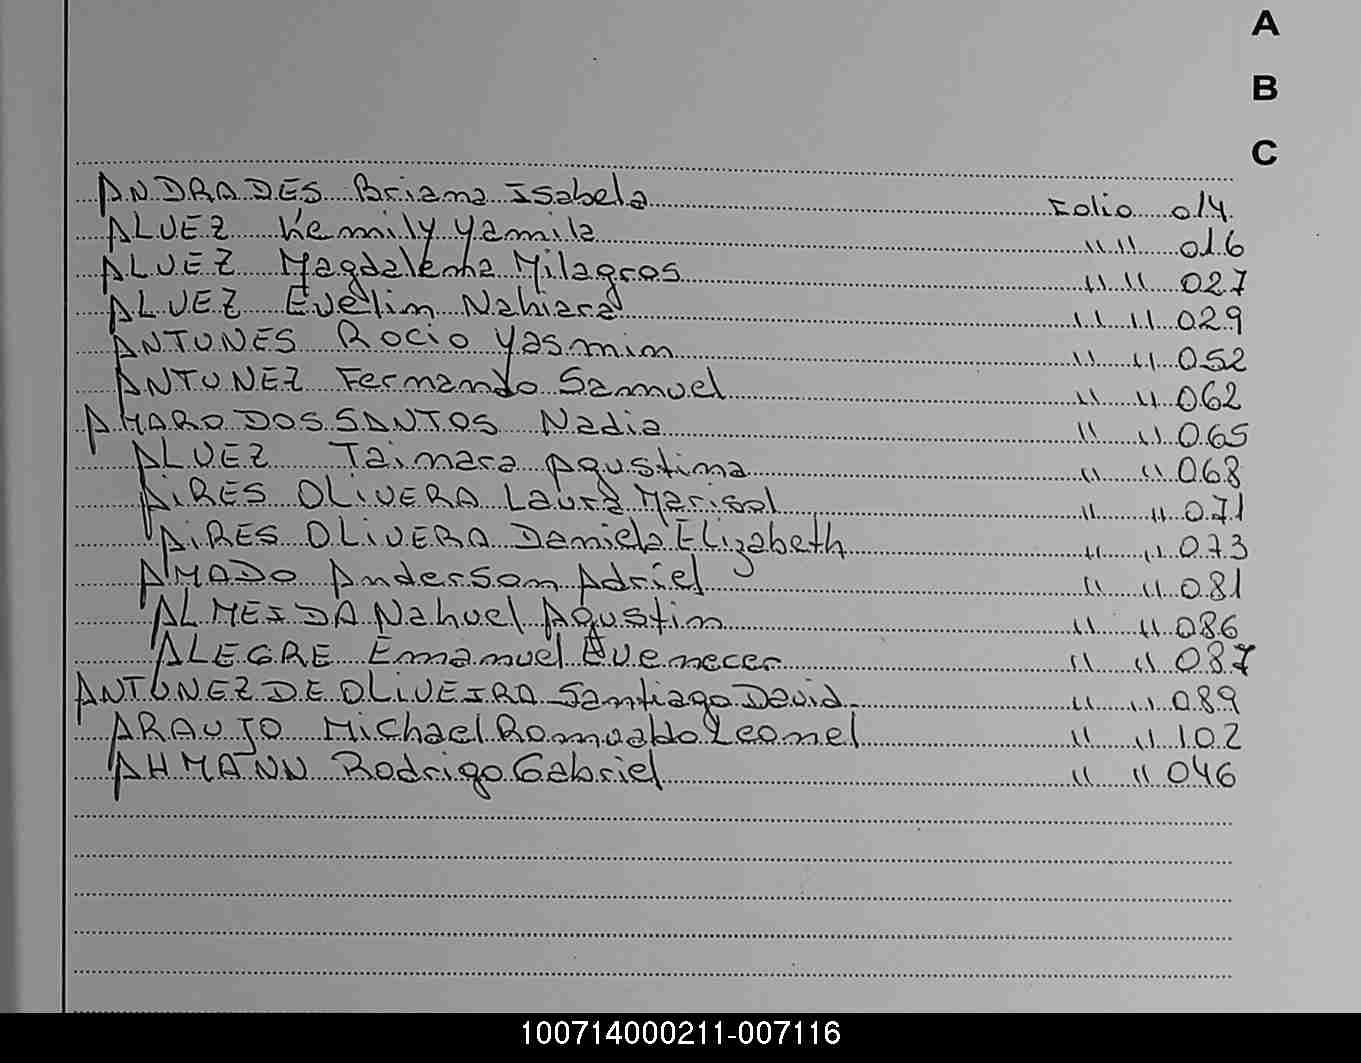 A
B
C
ANDRADES Briana Isabela Folio 014
ALVEZ Kemily Yamila " " 016
ALVEZ Magdalena Milagros " " 027
ALVEZ Evelin Nahiara " " 029
ANTUNES Rocio Yasmin " " 052
ANTUNEZ Fernando Samuel " " 062
AMARO DOS SANTOS Nadia " " 065
ALVEZ Taimara Agustina " " 068
AiRES OLiVERA Laura Marisol " " 071
AiRES OLiVERA Daniela Elizabeth " " 073
AMADO Anderson Adriel " " 081
ALMEIDA Nahuel Agustin " " 086
ALEGRE Emanuel Evenecer " " 087
ANTUNEZ DE OLiVEIRA Santiago David " " 089
ARAUJO Michael Romualdo Leonel " " 102
AHMANN Rodrigo Gabriel " " 046
100714000211-007116